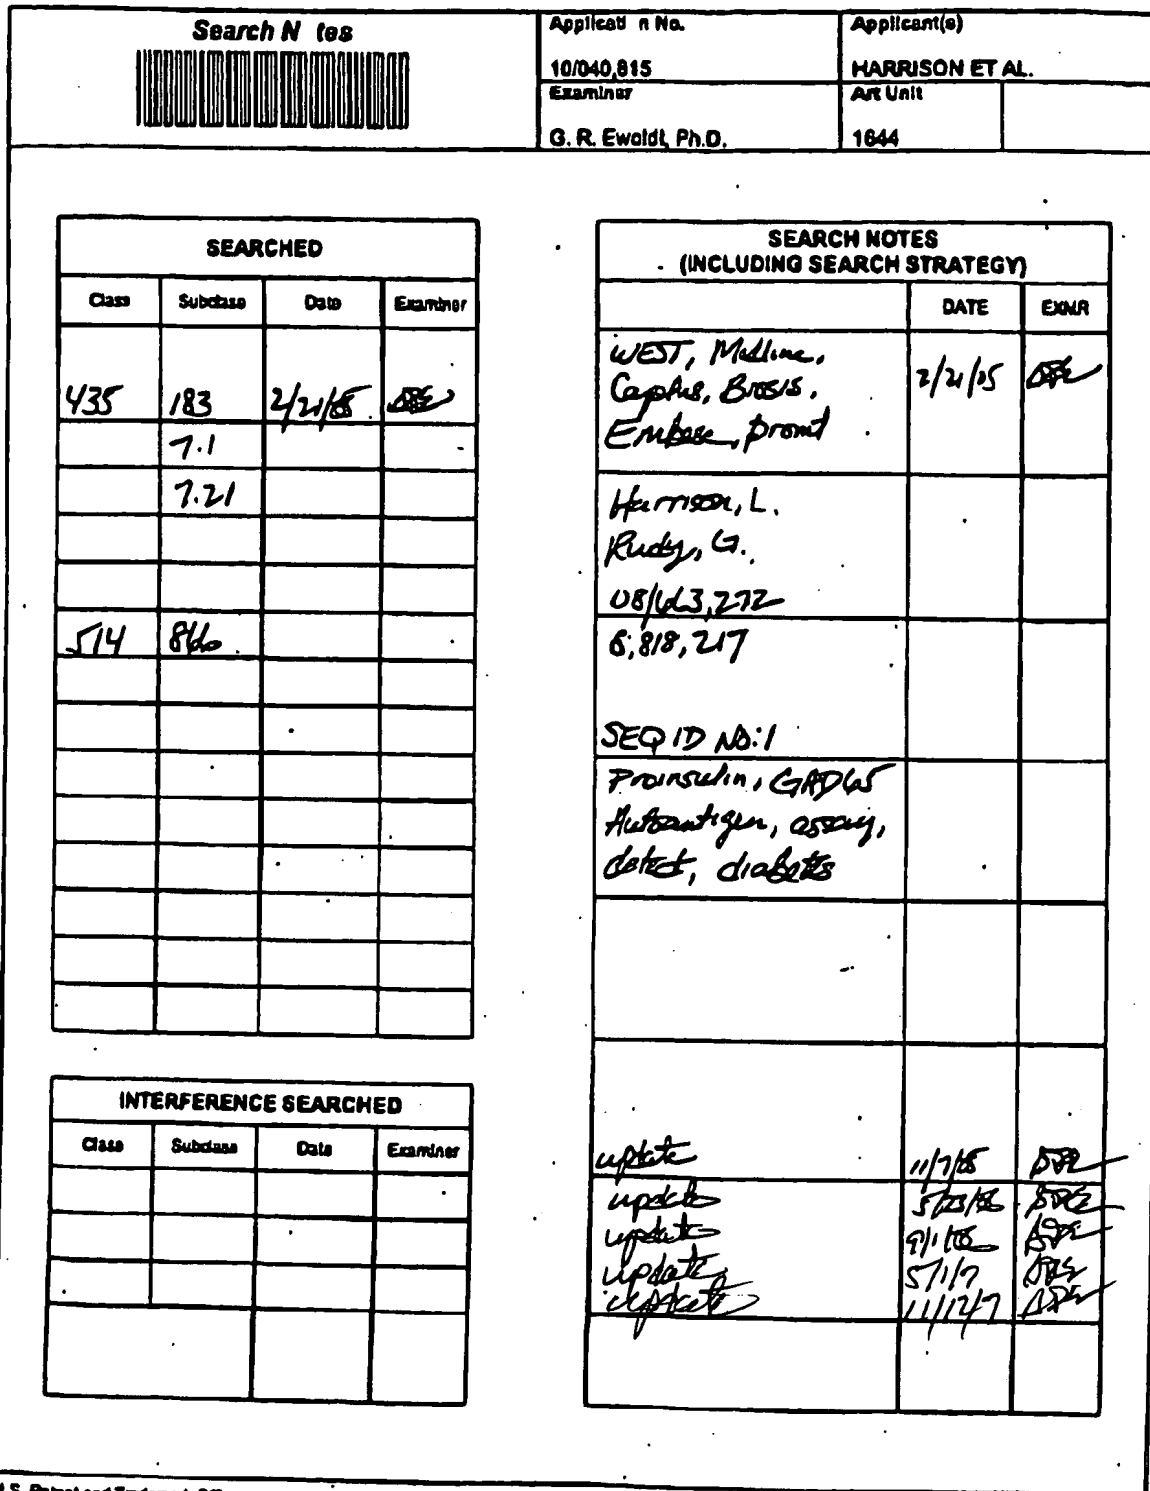 Search N tes
Applicati n No.
10/040,815
Applicant(s)
HARRISON ET AL.
Examiner
G. R. Ewoldt, Ph.D.
Art Unit
1644
SEARCHED
Class Subclass Date Examiner
435 183 2/21/05
7.1
7.21
514 866
INTERFERENCE SEARCHED
Class Subclass Date Examiner
SEARCH NOTES
(INCLUDING SEARCH STRATEGY)
DATE EXMR
WEST, Medline, 2/21/05
Caplus, Biosis,
Embase, promt
Harrison, L.
Rudy, G.
08/663,272
6,818,217
SEQ ID NO:1
Proinsulin, GAD65
Autoantigen, assay,
detect, diabetes
update 11/7/05
update 5/23/06
update 9/1/06
update 5/1/7
update 11/12/7